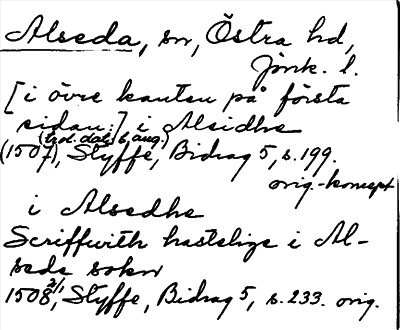 Alseda, sn, Östra hd,
Jönk. l.
[i övre kanten på första
sidan:] i Alsidhe
(trol. dat. 6 aug.)
(1507), Styffe, Bidrag 5, s. 199.
orig.-koncept
i Alsedhe
Scriffwith hastelige i Al-
seda sokn
1508 2/1, Styffe, Bidrag 5, s. 233. orig.